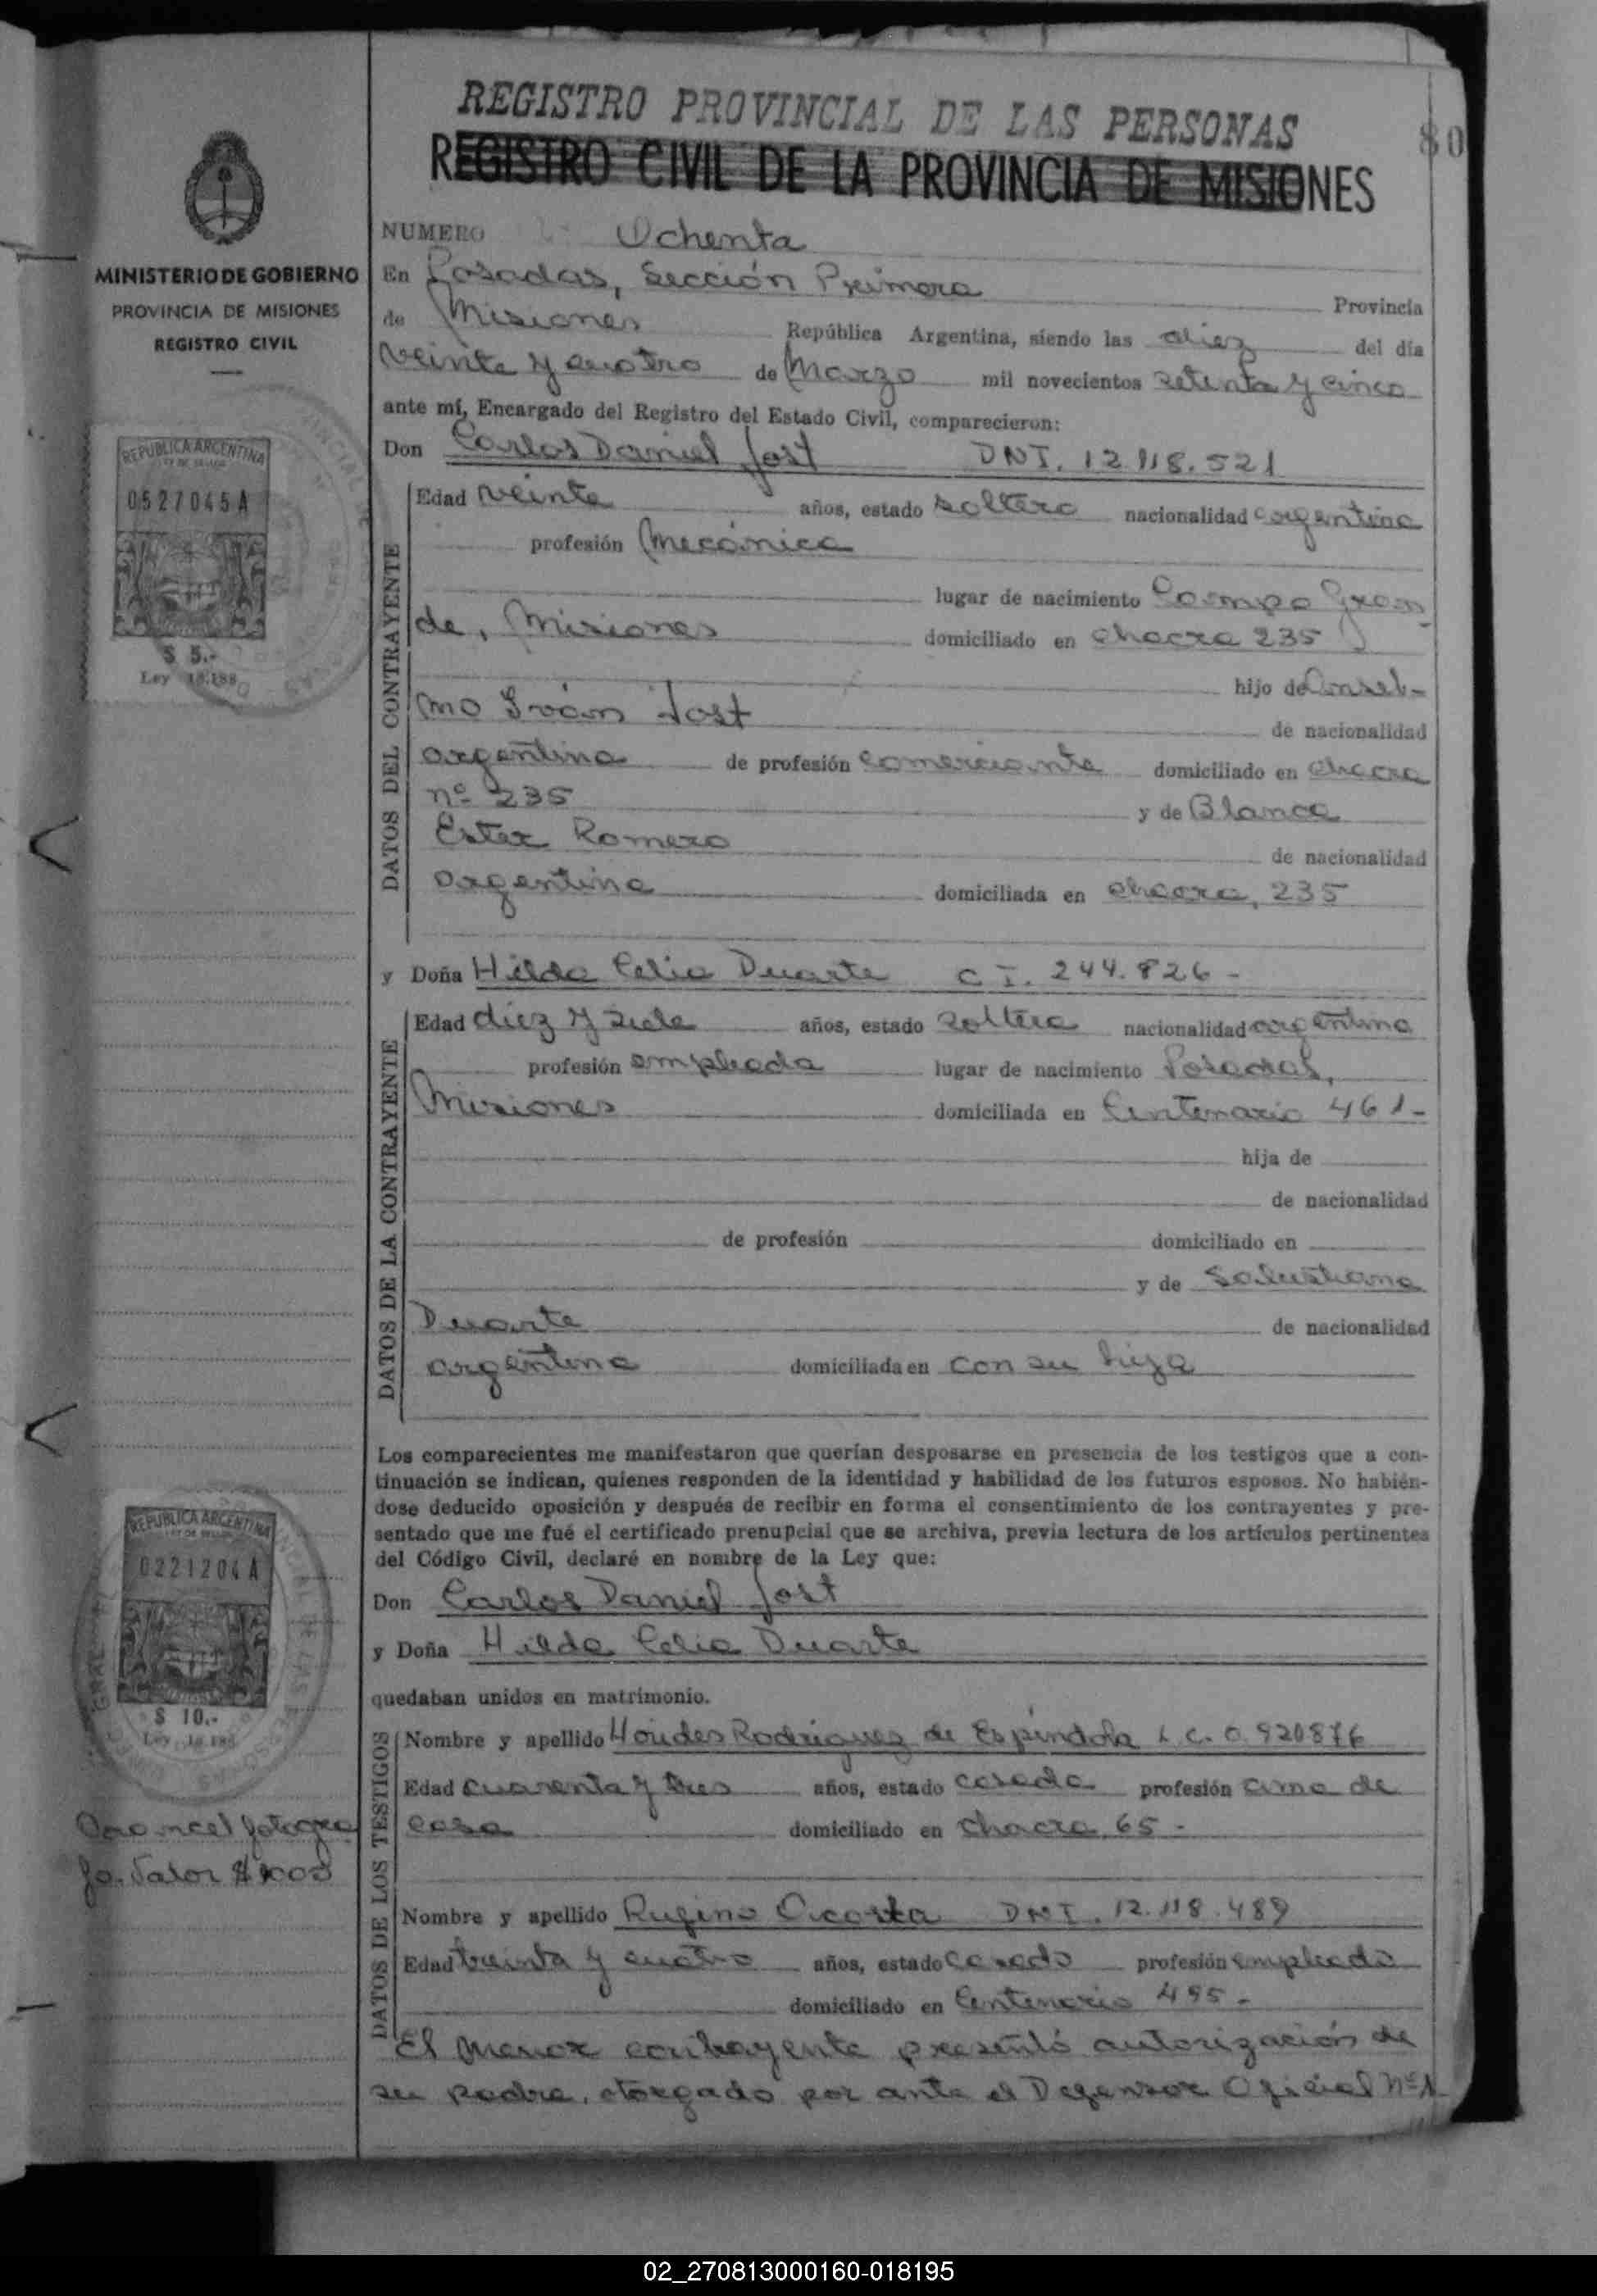 REGISTRO PROVINCIAL DE LAS PERSONAS
80
REGISTRO CIVIL DE LA PROVINCIA DE MISIONES
MINISTERIO DE GOBIERNO
PROVINCIA DE MISIONES
REGISTRO CIVIL
NUMERO Ochenta
En Posadas, Sección Primera Provincia
de Misiones República Argentina, siendo las diez del día
veinte y cuatro de Marzo mil novecientos setenta y cinco
ante mí, Encargado del Registro del Estado Civil, comparecieron:
Don Carlos Daniel Jost DNI. 12.118.521
DATOS DEL CONTRAYENTE
Edad veinte años, estado soltero nacionalidad argentina
profesión Mecánico
lugar de nacimiento Campo Gran
de, Misiones domiciliado en chacra 235
hijo de Ansel-
mo Iván Jost de nacionalidad
argentina de profesión comerciante domiciliado en chacra
nº 235 y de Blanca
Ester Romero de nacionalidad
argentina domiciliada en chacra, 235
y Doña Hilda Celia Duarte C.I. 244.826-
DATOS DE LA CONTRAYENTE
Edad diez y siete años, estado soltera nacionalidad argentina
profesión empleada lugar de nacimiento Posadas,
Misiones domiciliada en Centenario 461-
hija de
de nacionalidad
de profesión domiciliado en
y de Salustiana
Duarte de nacionalidad
argentina domiciliada en con su hija
Los comparecientes me manifestaron que querían desposarse en presencia de los testigos que a con-
tinuación se indican, quienes responden de la identidad y habilidad de los futuros esposos. No habién-
dose deducido oposición y después de recibir en forma el consentimiento de los contrayentes y pre-
sentado que me fué el certificado prenupcial que se archiva, previa lectura de los artículos pertinentes
del Código Civil, declaré en nombre de la Ley que:
Don Carlos Daniel Jost
y Doña Hilda Celia Duarte
quedaban unidos en matrimonio.
DATOS DE LOS TESTIGOS
Nombre y apellido Rodriguez de Espíndola L.C. 0.920876
Edad cuarenta y tres años, estado casada profesión ama de
casa domiciliado en chacra 65-
Nombre y apellido Rufino Acosta DNI. 12.118.489
Edad treinta y cuatro años, estado casado profesión empleado
domiciliado en Centenario 495-
El menor contrayente presentó autorización de
su padre, otorgado por ante el Defensor Oficial Nº1
REPUBLICA ARGENTINA
LEY DE SELLOS
0527045 A
$ 5.-
Ley 18.188
REPUBLICA ARGENTINA
LEY DE SELLOS
0221204 A
$ 10.-
Ley 18.188
fotogra
fo. Valor
02_270813000160-018195